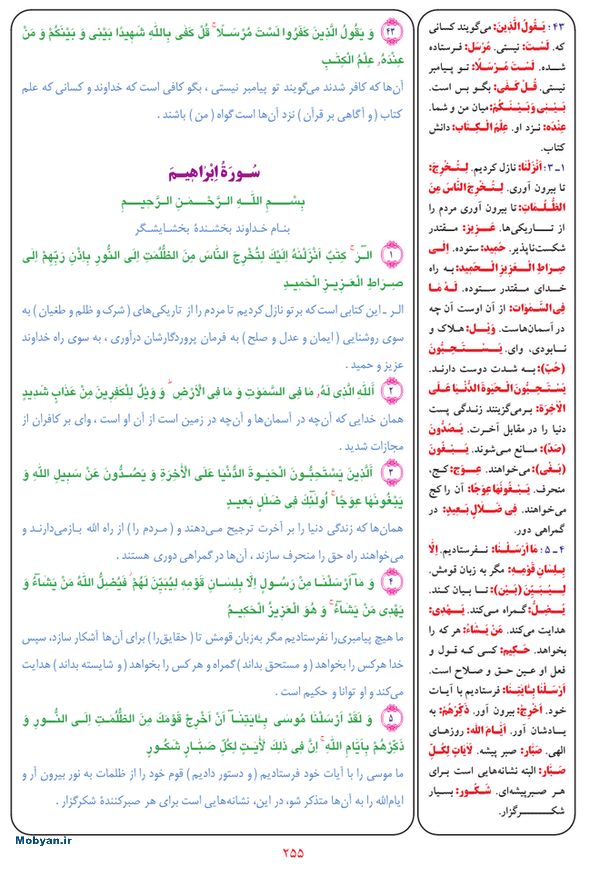 ۴۳: يَقُولُ الَّذِينَ: می‌گویند کسانی
که. لَسْتَ: نیستی. مُرْسَل: فرستاده
شده. لَسْتَ مُرْسَلًا: تو پیامبر
نیستی. قُلْ كَفَى: بگو بس است.
بَيْنِي وَ بَيْنَكُمْ: میان من و شما.
عِنْدَهُ: نزد او. عِلْمُ الْكِتَابِ: دانش
کتاب.
۱-۳: أَنْزَلْنَا: نازل کردیم. لِتُخْرِجَ:
تا بیرون آوری. لِتُخْرِجَ النَّاسَ مِنَ
الظُّلُمَاتِ: تا بیرون آوری مردم را
از تاریکی‌ها. عَزِيز: مقتدر
شکست‌ناپذیر. حَمِيد: ستوده. إِلَى
صِرَاطِ الْعَزِيزِ الْحَمِيدِ: به راه
خدای مقتدر ستوده. لَهُ مَا
فِي السَّمَوَاتِ: از آن اوست آن چه
در آسمان‌هاست. وَيْل: هلاک و
نابودی، وای. يَسْتَحِبُّونَ
(حُبّ): به شدت دوست دارند.
يَسْتَحِبُّونَ الْحَيَوةَ الدُّنْيَا عَلَى
الْآخِرَةِ: برمی‌گزینند زندگی پست
دنیا را در مقابل آخرت. يَصُدُّونَ
(صَدّ): مانع می‌شوند. يَبْغُونَ
(بَغْى): می‌خواهند. عِوَج: کج،
منحرف. يَبْغُونَهَا عِوَجًا: آن را کج
می‌خواهند. فِي ضَلَالٍ بَعِيدٍ: در
گمراهی دور.
۴-۵: مَا أَرْسَلْنَا: نفرستادیم. إِلَّا
بِلِسَانِ قَوْمِهِ: مگر به زبان قومش.
لِيُبَيِّنَ (بَيْن): تا بیان کند.
يُضِلُّ: گمراه می‌کند. يَهْدِي:
هدایت می‌کند. مَنْ يَشَاءُ: هر که را
بخواهد. حَكِيم: کسی که قول و
فعل او عین حق و صلاح است.
أَرْسَلْنَا بِآيَاتِنَا: فرستادیم با آیات
خود. أَخْرِجْ: بیرون آور. ذَكِّرْهُمْ: به
یادشان آور. أَيَّامَ اللهِ: روزهای
الهی. صَبَّار: صبر پیشه. لَآيَاتٍ لِكُلِّ
صَبَّارٍ: البته نشانه‌هایی است برای
هر صبرپیشه‌ای. شَكُور: بسیار
شکرگزار.
۴۳ وَ يَقُولُ الَّذِينَ كَفَرُوا لَسْتَ مُرْسَلًا ۚ قُلْ كَفَى بِاللهِ شَهِيدًا بَيْنِي وَ بَيْنَكُمْ وَ مَنْ
عِنْدَهُ عِلْمُ الْكِتٰبِ
آن‌ها که کافر شدند می‌گویند تو پیامبر نیستی ، بگو کافی است که خداوند و کسانی که علم
کتاب ( و آگاهی بر قرآن ) نزد آن‌ها است گواه ( من ) باشند .
سُورَةُ اِبْرَاهِيمَ
بِسْمِ اللهِ الرَّحْمٰنِ الرَّحِيمِ
بنام خداوند بخشندهٔ بخشایشگر
۱ الٓرٰ ۚ كِتٰبٌ أَنْزَلْنٰهُ إِلَيْكَ لِتُخْرِجَ النَّاسَ مِنَ الظُّلُمٰتِ إِلَى النُّورِ بِإِذْنِ رَبِّهِمْ إِلَى
صِرَاطِ الْعَزِيزِ الْحَمِيدِ
الر ـ این کتابی است که بر تو نازل کردیم تا مردم را از تاریکی‌های ( شرک و ظلم و طغیان ) به
سوی روشنایی ( ایمان و عدل و صلح ) به فرمان پروردگارشان درآوری ، به سوی راه خداوند
عزیز و حمید .
۲ اَللهِ الَّذِي لَهُ مَا فِي السَّمٰوٰتِ وَ مَا فِي الْأَرْضِ ۗ وَ وَيْلٌ لِلْكٰفِرِينَ مِنْ عَذَابٍ شَدِيدٍ
همان خدایی که آن‌چه در آسمان‌ها و آن‌چه در زمین است از آن او است ، وای بر کافران از
مجازات شدید .
۳ اَلَّذِينَ يَسْتَحِبُّونَ الْحَيٰوةَ الدُّنْيَا عَلَى الْآخِرَةِ وَ يَصُدُّونَ عَنْ سَبِيلِ اللهِ وَ
يَبْغُونَهَا عِوَجًا ۚ أُولٰٓئِكَ فِي ضَلٰلٍ بَعِيدٍ
همان‌ها که زندگی دنیا را بر آخرت ترجیح می‌دهند و ( مردم را ) از راه الله بازمی‌دارند و
می‌خواهند راه حق را منحرف سازند ، آن‌ها در گمراهی دوری هستند .
۴ وَ مَآ أَرْسَلْنَا مِنْ رَسُولٍ إِلَّا بِلِسَانِ قَوْمِهِ لِيُبَيِّنَ لَهُمْ ۖ فَيُضِلُّ اللهُ مَنْ يَشَآءُ وَ
يَهْدِي مَنْ يَشَآءُ ۚ وَ هُوَ الْعَزِيزُ الْحَكِيمُ
ما هیچ پیامبری را نفرستادیم مگر به‌زبان قومش تا ( حقایق را ) برای آن‌ها آشکار سازد، سپس
خدا هرکس را بخواهد ( و مستحق بداند ) گمراه و هر کس را بخواهد ( و شایسته بداند ) هدایت
می‌کند و او توانا و حکیم است .
۵ وَ لَقَدْ أَرْسَلْنَا مُوسَى بِـَٔايٰتِنَآ أَنْ أَخْرِجْ قَوْمَكَ مِنَ الظُّلُمٰتِ إِلَى النُّورِ وَ
ذَكِّرْهُمْ بِأَيَّامِ اللهِ ۚ إِنَّ فِي ذٰلِكَ لَأٰيٰتٍ لِكُلِّ صَبَّارٍ شَكُورٍ
ما موسی را با آیات خود فرستادیم ( و دستور دادیم ) قوم خود را از ظلمات به نور بیرون آر و
ایام‌الله را به آن‌ها متذکر شو، در این، نشانه‌هایی است برای هر صبرکنندهٔ شکرگزار .
Mobyan.ir
۲۵۵